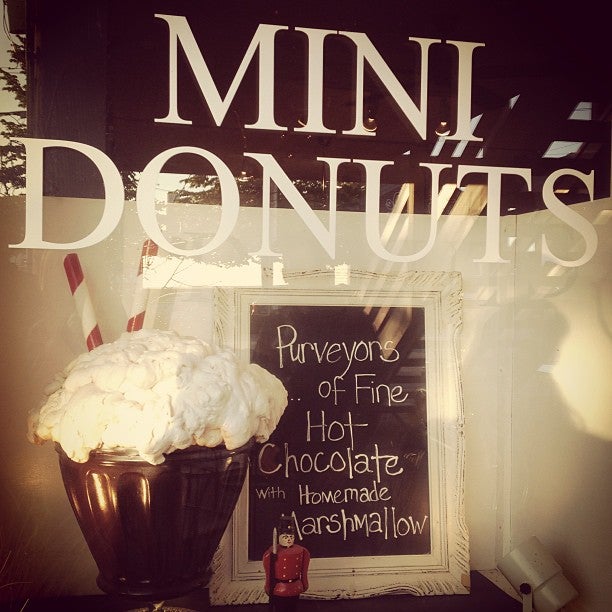 MINI
DONUTS
Purveyors
.. of Fine
Hot
Chocolate
with Homemade
Marshmallow